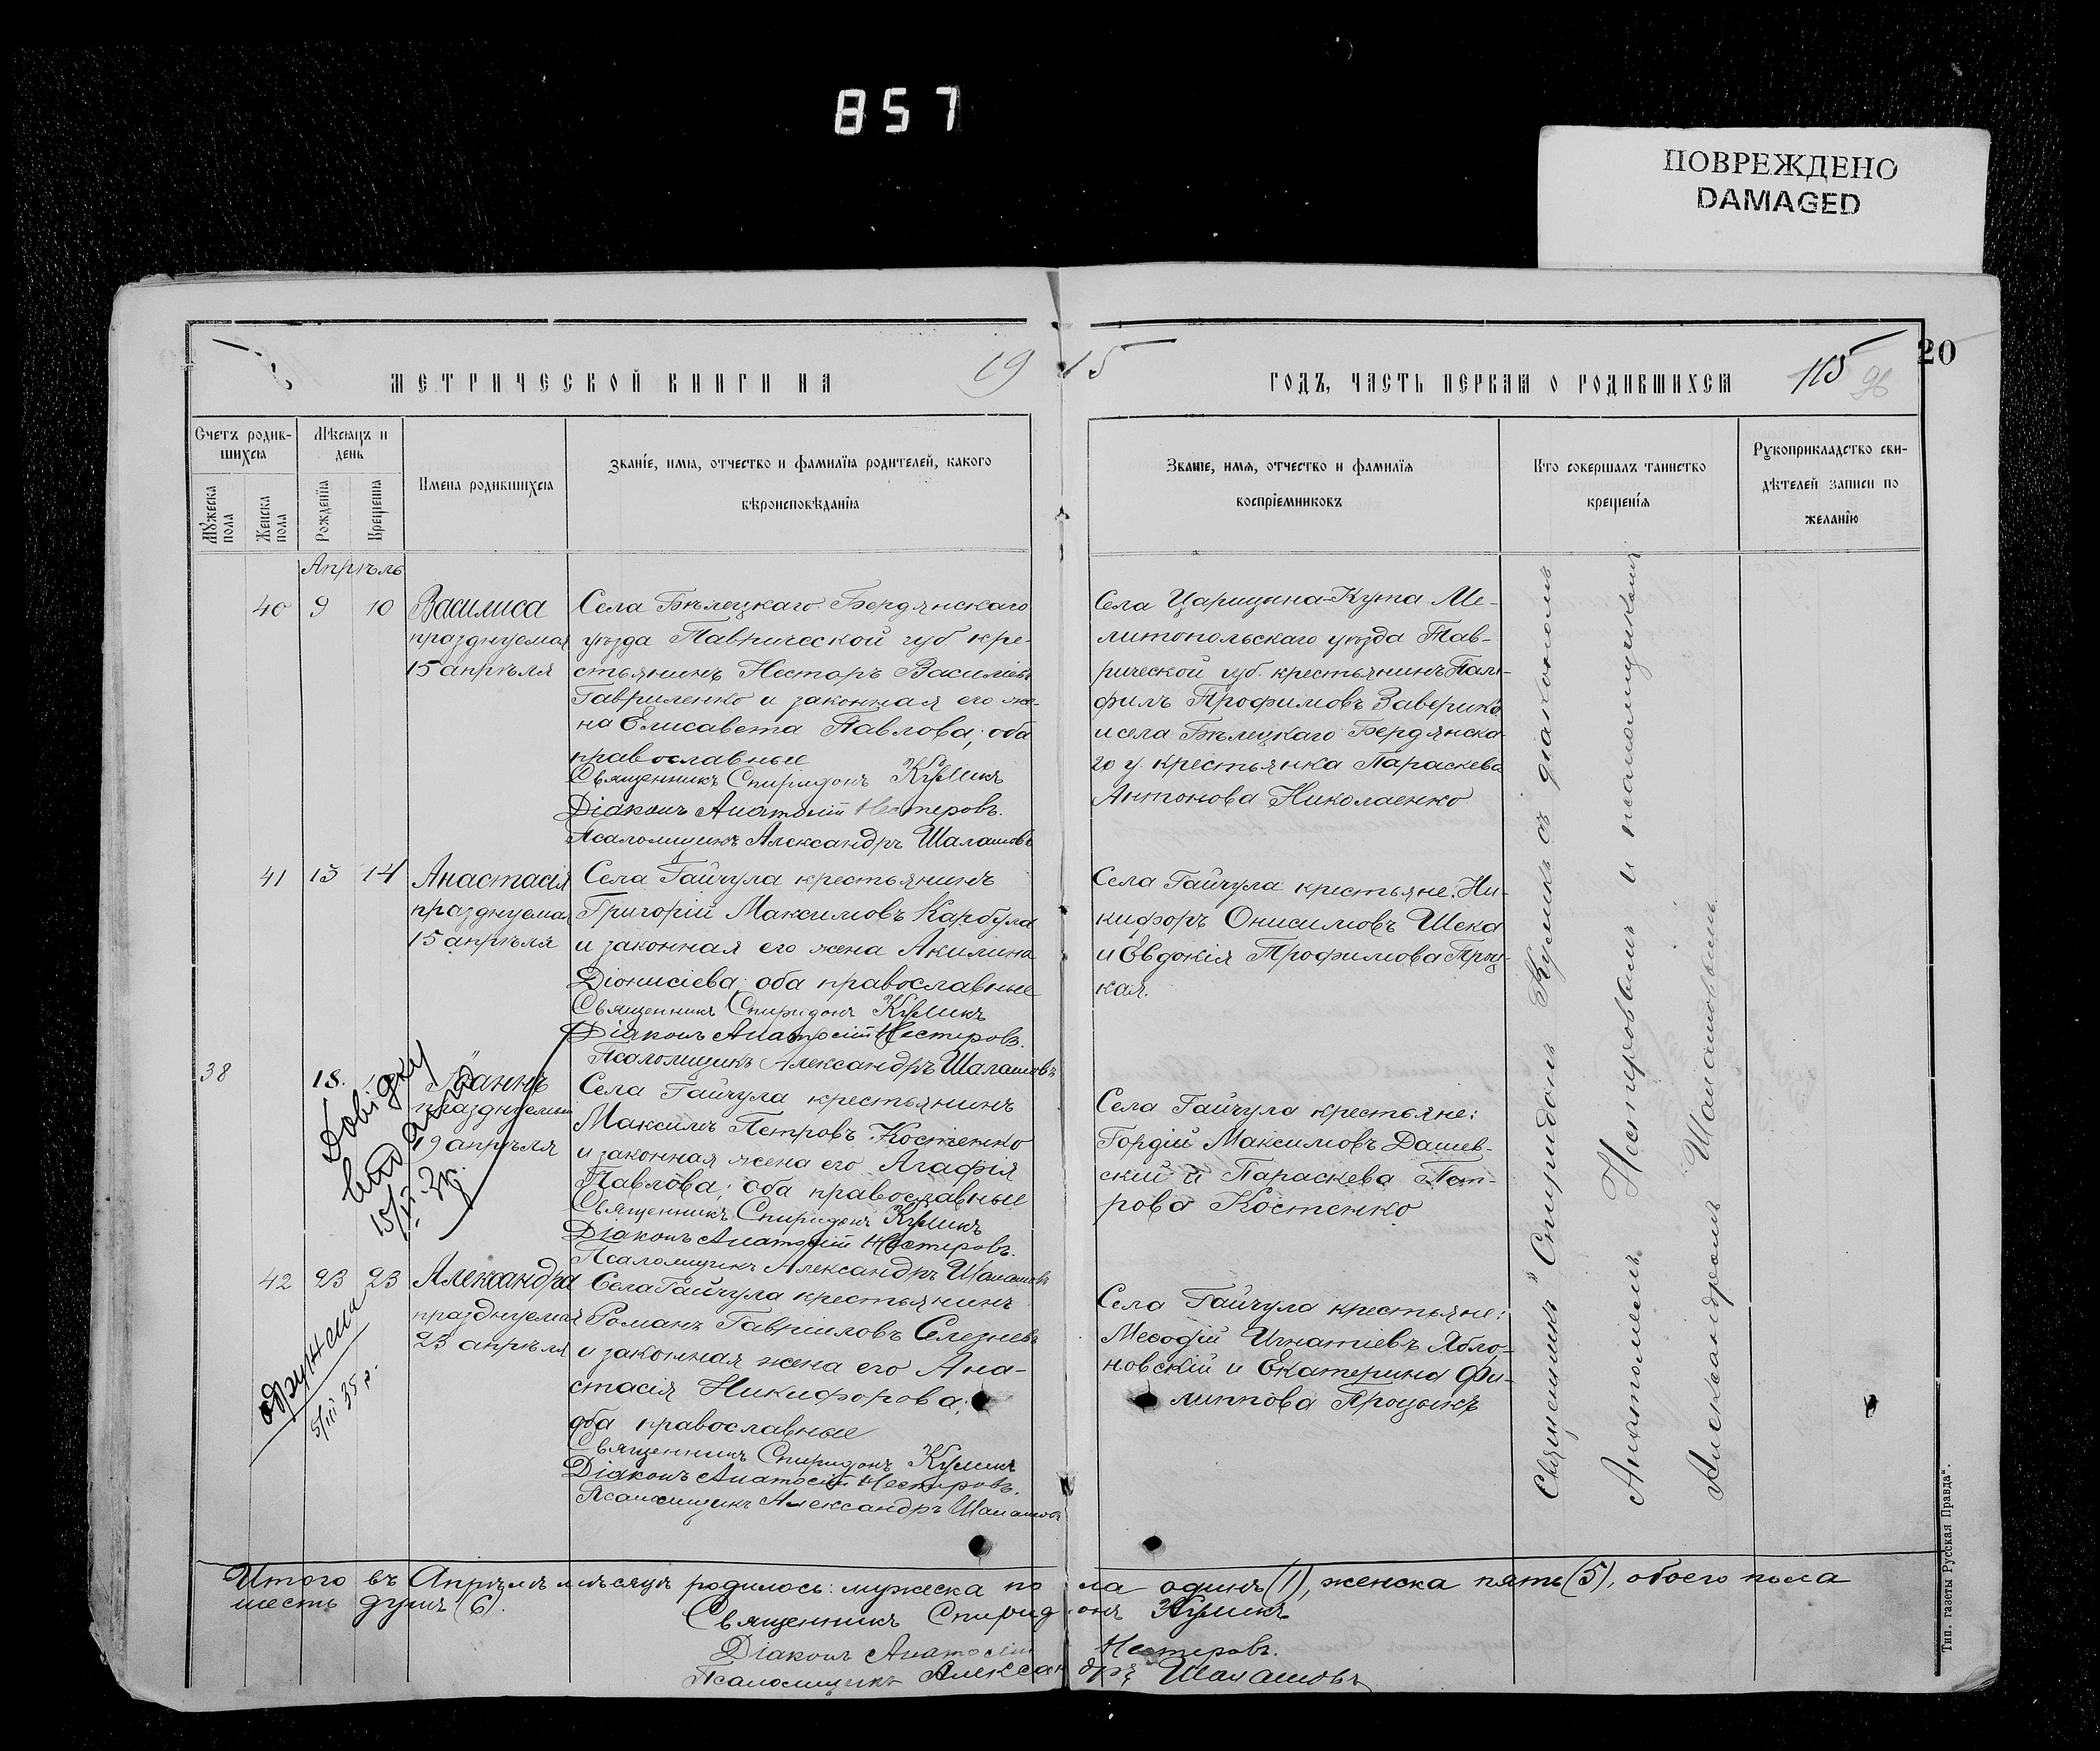 857
ПОВРЕЖДЕНО
DAMAGED
20
МЕТРИЧЕСКОЙ КНИГИ НА 1915 ГОДЪ, ЧАСТЬ ПЕРВАЯ О РОДИВШИХСЯ
115
96
Счетъ родив-
шихся
Мѣсяцъ и
день
Мужеска
пола
Женска
пола
Рожденїя
Крещенїя
Имена родившихся
Званїе, имя, отчество и фамилїя родителей, какого
вѣроисповѣданїя
Званїе, имя, отчество и фамилїя
воспрїемниковъ
Кто совершалъ таинство
крещенїя
Рукоприкладство сви-
дѣтелей записи по
желанїю
Апрѣль
40 9 10
Василиса
празднуемая
15 апрѣля
Села Бѣлецкаго Бердянскаго
уѣзда Таврической губ. кре-
стьянинъ Несторъ Василіевъ
Гавриленко и законная его же-
на Елисавета Павлова; оба
православные
Священникъ Спиридонъ Куликъ
Діаконъ Анатолій Нестеровъ.
Псаломщикъ Александръ Шалашовъ
Села Царицына-Кута Ме-
литопольскаго уѣзда Тав-
рической губ. крестьянинъ Пам-
филъ Трофимовъ Заверико
и села Бѣлецкаго Бердянска-
го у. крестьянка Параскева
Антонова Николаенко
41 13 14
Анастасія
празднуемая
15 апрѣля
Села Гайчула крестьянинъ
Григорій Максимовъ Карбула
и законная его жена Акилина
Діонисіева; оба православные
Священникъ Спиридонъ Куликъ
Діаконъ Анатолій Нестеровъ.
Псаломщикъ Александръ Шалашовъ
Села Гайчула крестьяне: Ни-
кифоръ Онисимовъ Шека
и Евдокія Трофимова Троц-
кая.
38 18.
Іоаннъ
празднуемый
19 апрѣля
Довідку
видано
15/II 34.
Села Гайчула крестьянинъ
Максимъ Петровъ Костенко
и законная жена его Агафія
Павлова; оба православные
Священникъ Спиридонъ Куликъ
Діаконъ Анатолій Нестеровъ.
Псаломщикъ Александръ Шалашовъ
Села Гайчула крестьяне:
Гордій Максимовъ Дашев-
скій и Параскева Пет-
рова Костенко
42 23 23
Александра
празднуемая
23 апрѣля
одружена
5/III 35 р.
Села Гайчула крестьянинъ
Романъ Гавріиловъ Селезневъ
и законная жена его Ана-
стасія Никифорова;
оба православные
Священникъ Спиридонъ Куликъ
Діаконъ Анатолій Нестеровъ.
Псаломщикъ Александръ Шалашовъ
Села Гайчула крестьяне:
Меѳодій Игнатіевъ Ябло-
новскій и Екатерина Фи-
липпова Процыкъ
Священникъ Спиридонъ Куликъ съ діакономъ
Анатоліемъ Нестеровымъ и псаломщикомъ
Александромъ Шалашовымъ
Итого въ Апрѣлѣ мѣсяцѣ родилось: мужеска пола одинъ (1), женска пять (5), обоего пола
шесть душъ (6).
Священникъ Спиридонъ Куликъ
Діаконъ Анатолій Нестеровъ.
Псаломщикъ Александръ Шалашовъ
Тип. газеты Русская Правда".